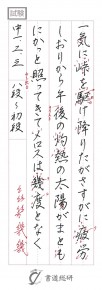 試験
一気に峠を駆け降りたがさすがに疲労
しおりから午後の灼熱の太陽がまとも
にかっと照ってきてメロスは幾度となく
中一、二、三　八段〜初段
書道総研